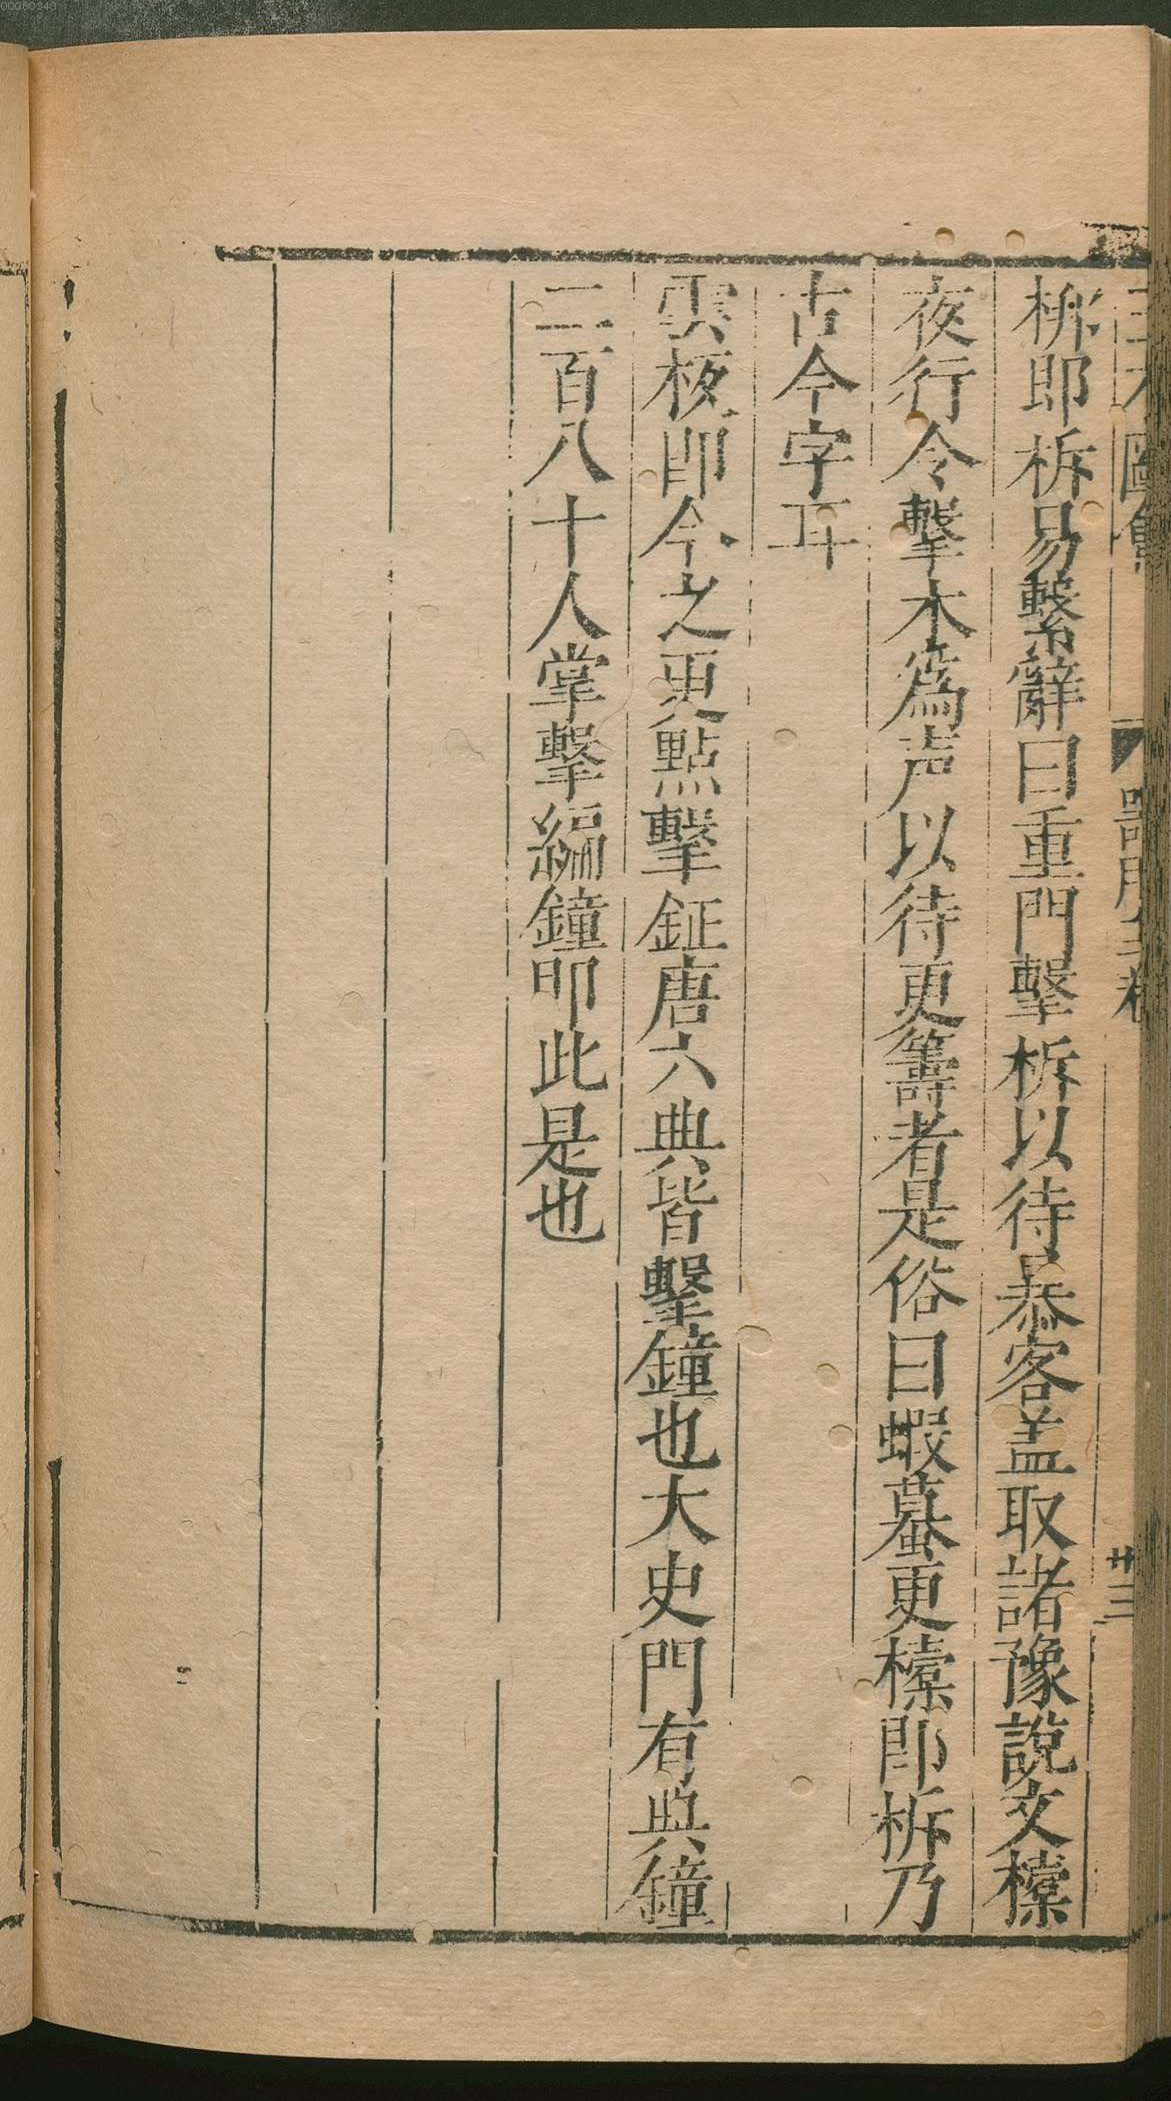 00080340
三才圖會 器用三卷 廿三
梆即柝易繫辭曰重門擊柝以待暴客盖取諸豫說文㯱
夜行令擊木爲声以待更籌者是俗曰蝦蟇更㯱即柝乃
古今字耳
雲板即今之更點擊鉦唐六典皆擊鐘也大史門有典鐘
二百八十人掌擊編鐘即此是也